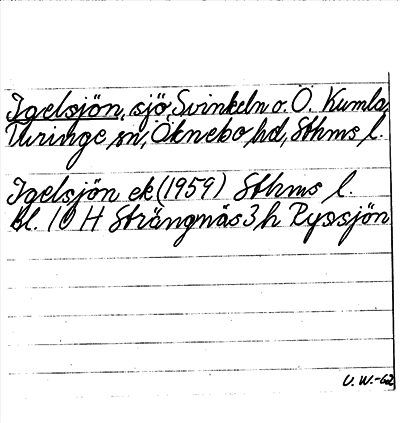 Igelsjön, sjö, Svinkeln o. Ö. Kumla,
Turinge sn, Öknebo hd, Sthms l.
Igelsjön ek (1959) Sthms l.
bl. 10 H Strängnäs 3 h Ryssjön
U.W.-62